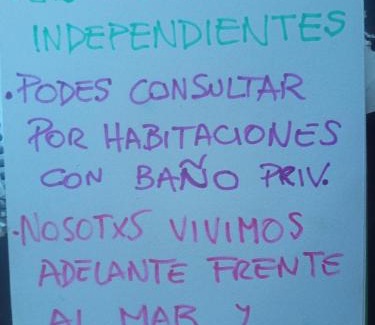 INDEPENDIENTES
• PODES CONSULTAR
POR HABITACIONES
CON BAÑO PRIV.
• NOSOTXS VIVIMOS
ADELANTE FRENTE
AL MAR Y